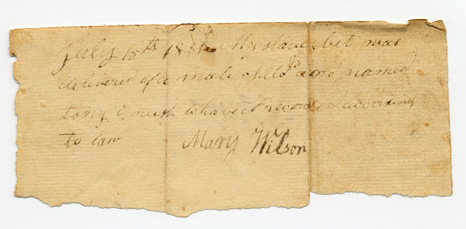 July 15th 18 My slave bet was
delivered of a male child and named
tony i wish to have it recorded according
to law
Mary Wilson